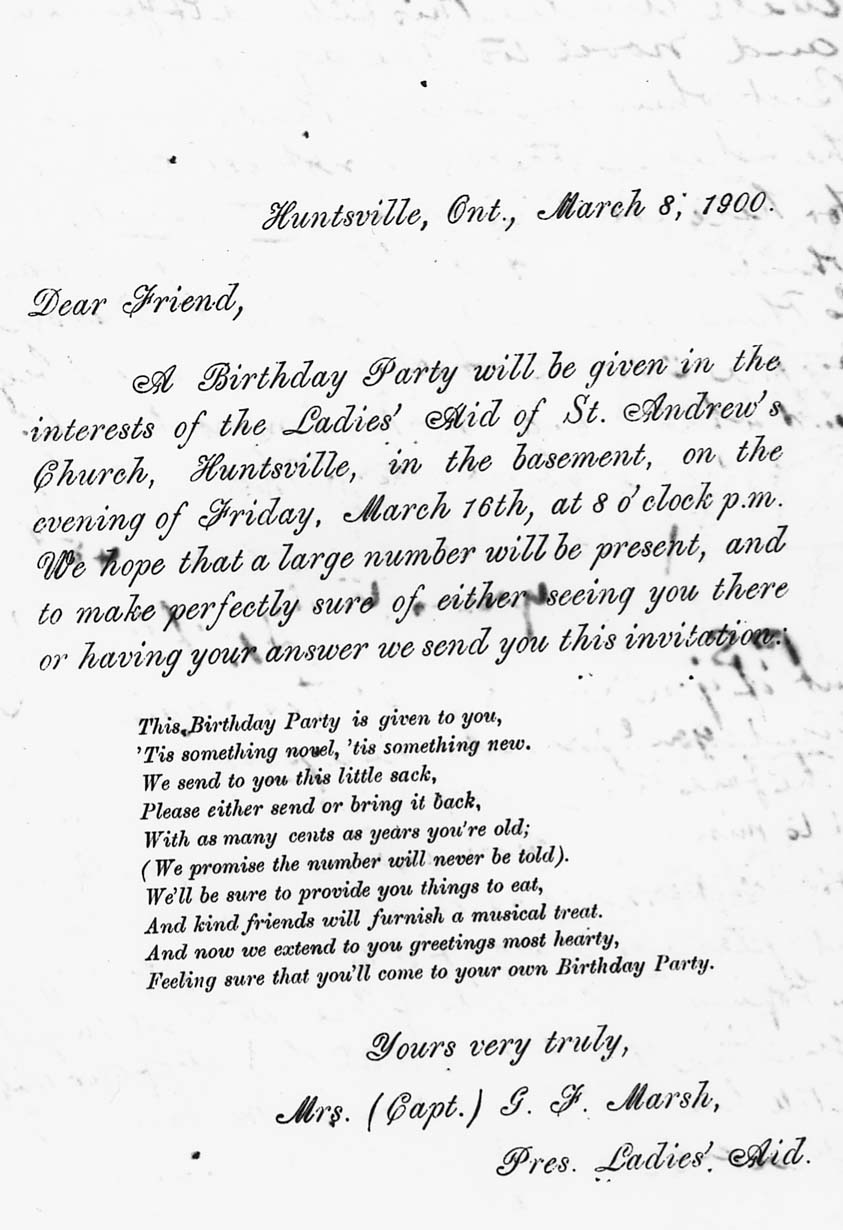 Huntsville, Ont., March 8, 1900.
Dear Friend,
A Birthday Party will be given in the
interests of the Ladies' Aid of St. Andrew's
Church, Huntsville, in the basement, on the
evening of Friday, March 16th, at 8 o'clock p.m.
We hope that a large number will be present, and
to make perfectly sure of either seeing you there
or having your answer we send you this invitation:
This Birthday Party is given to you,
'Tis something novel, 'tis something new.
We send to you this little sack,
Please either send or bring it back,
With as many cents as years you're old;
(We promise the number will never be told).
We'll be sure to provide you things to eat,
And kind friends will furnish a musical treat.
And now we extend to you greetings most hearty,
Feeling sure that you'll come to your own Birthday Party.
Yours very truly,
Mrs. (Capt.) G. F. Marsh,
Pres. Ladies'. Aid.